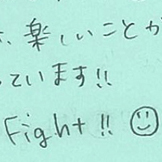 、楽しいことが
っています!!
Fight!! ☺